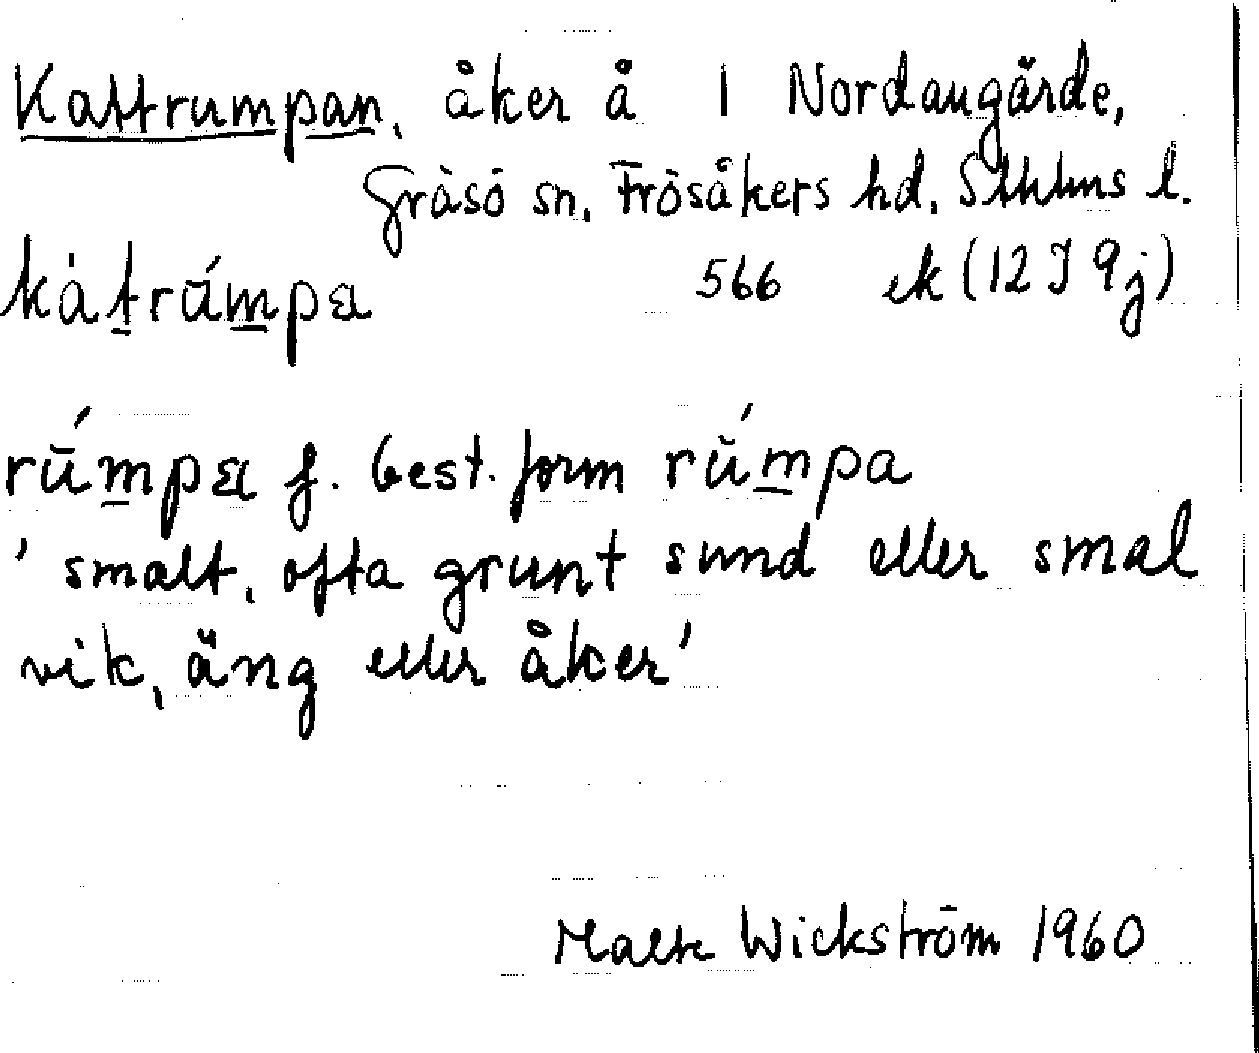 Kattrumpan, åker å 1 Nordangärde,
Gräsö sn, Frösåkers hd, Sthlms l.
kàt̲rŭ́m̲pa 566 ek (12 I 9 j)
rŭ́m̲pa f. best. form rŭ́m̲pa
' smalt, ofta grunt sund eller smal
vik, äng eller åker'
Malte Wickström 1960